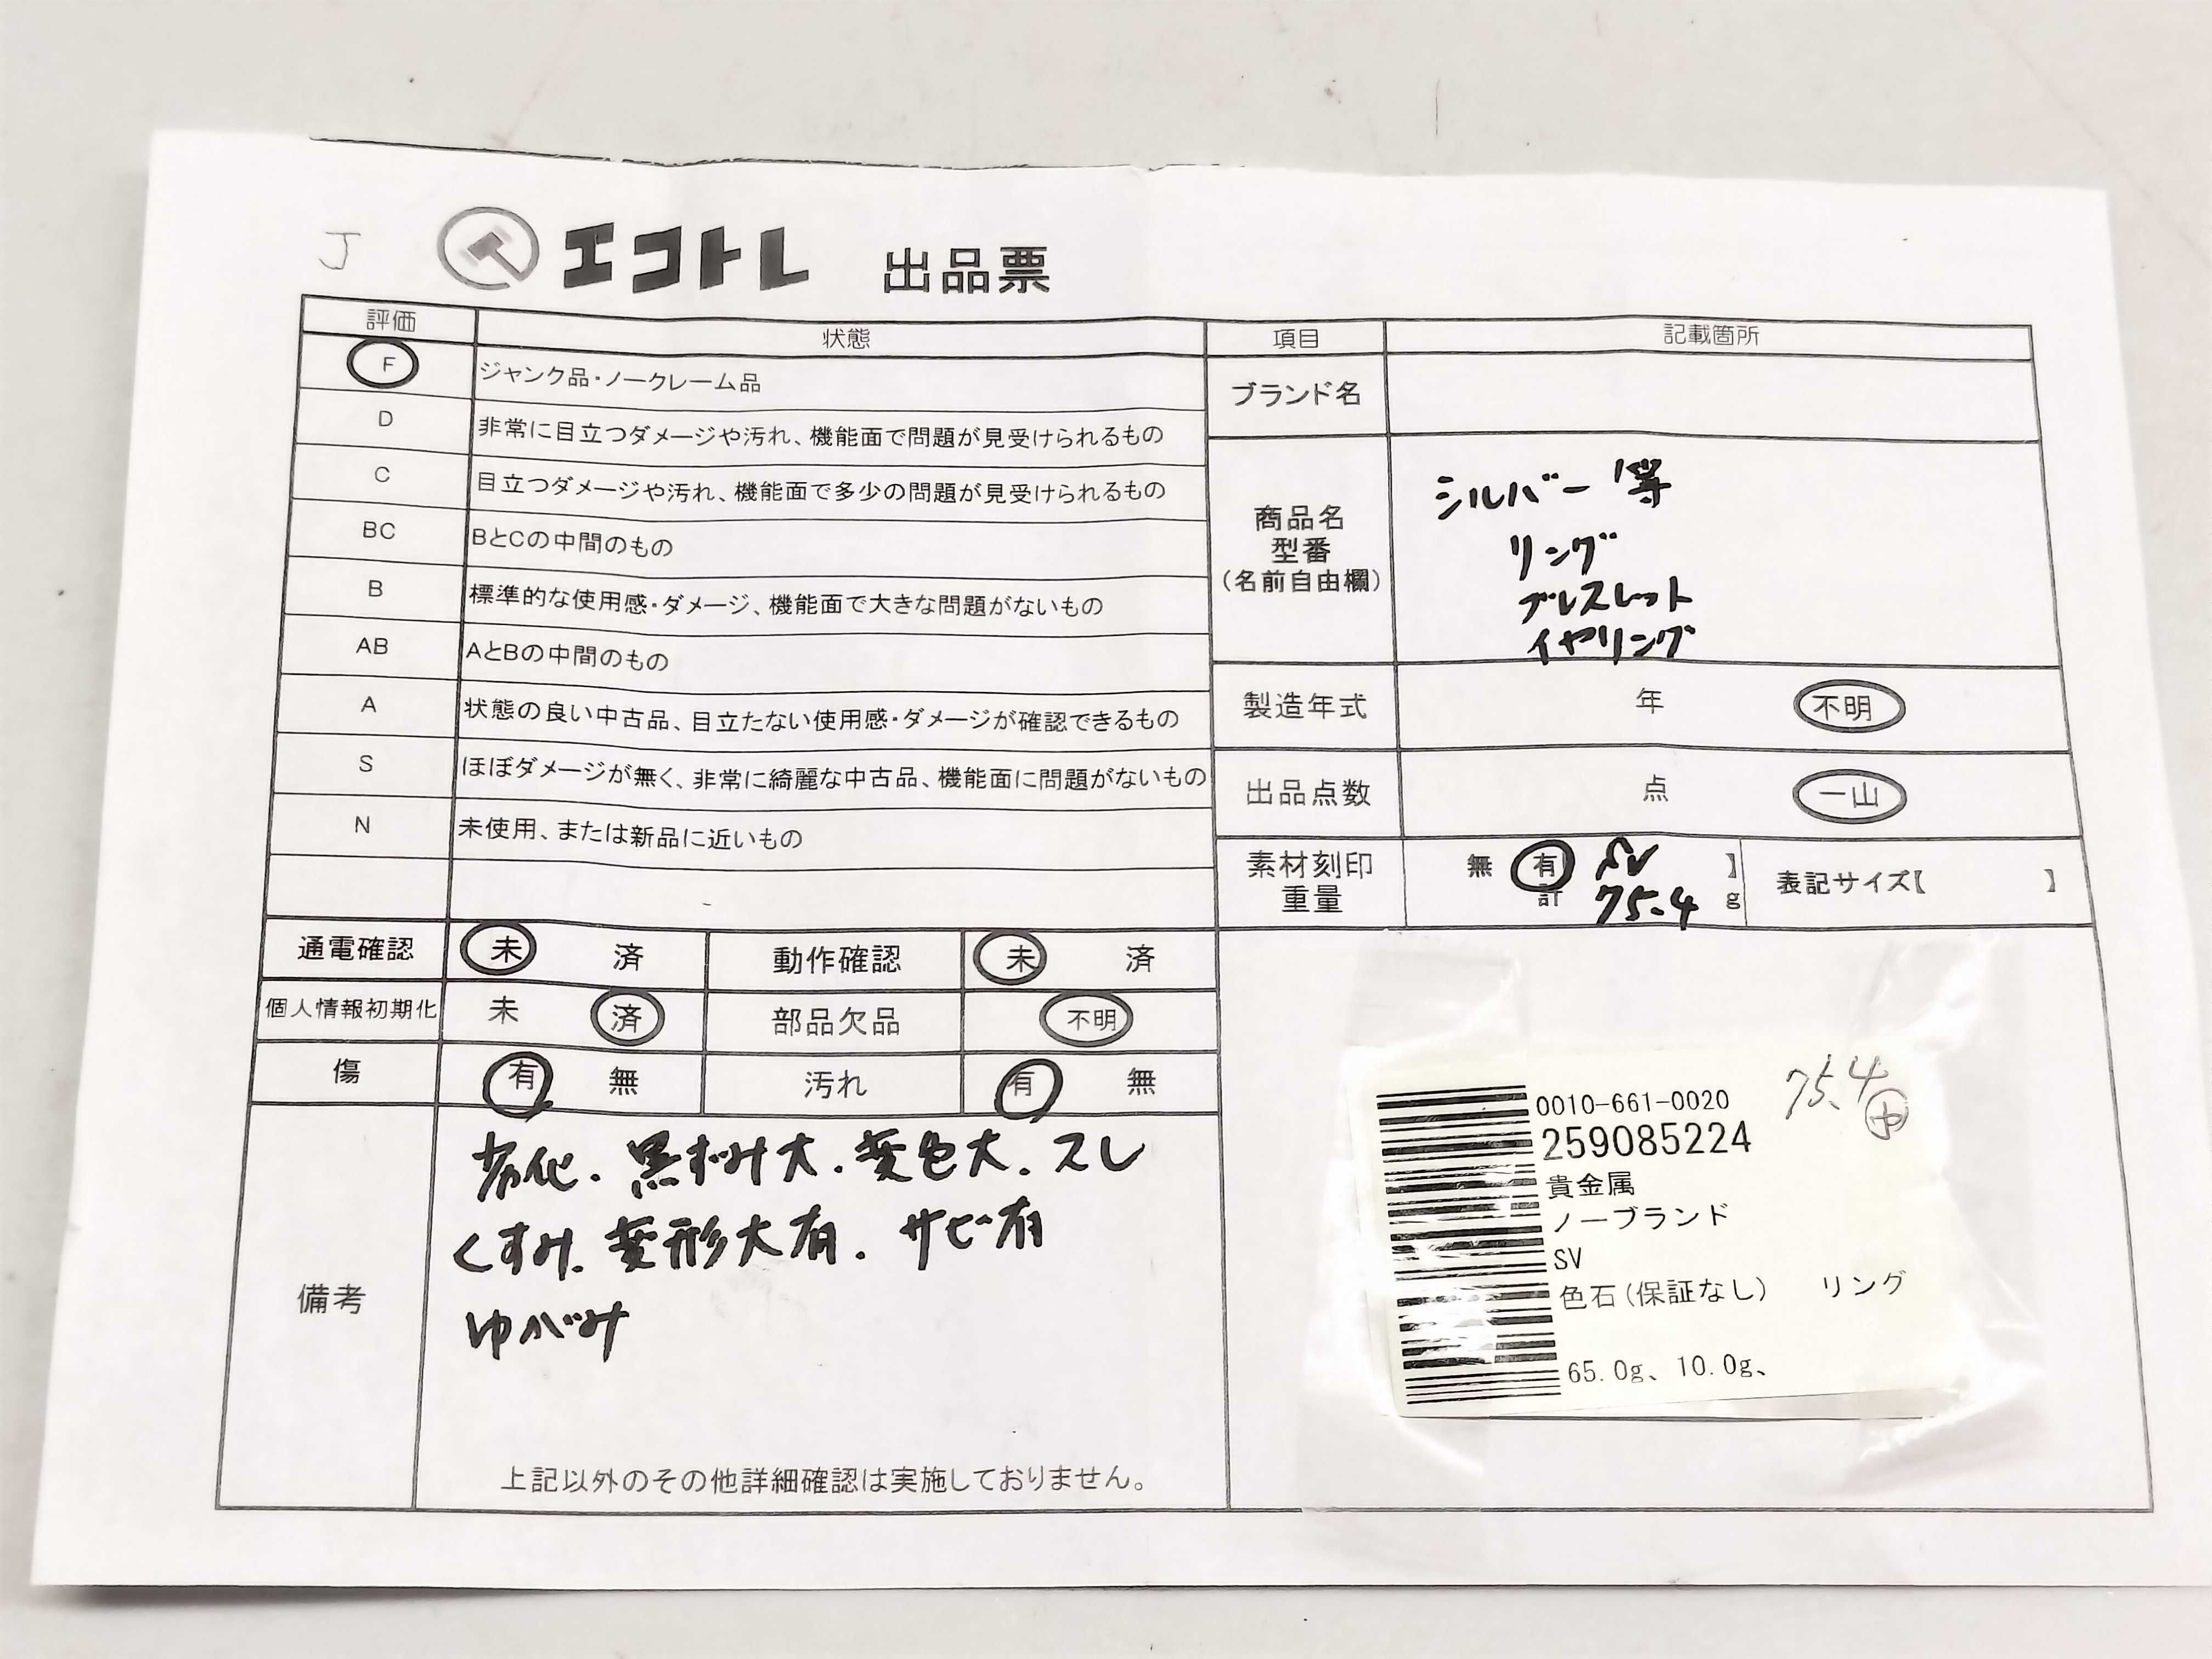 J
エコトレ 出品票
評価 状態
F ジャンク品・ノークレーム品
D 非常に目立つダメージや汚れ、機能面で問題が見受けられるもの
C 目立つダメージや汚れ、機能面で多少の問題が見受けられるもの
BC BとCの中間のもの
B 標準的な使用感・ダメージ、機能面で大きな問題がないもの
AB AとBの中間のもの
A 状態の良い中古品、目立たない使用感・ダメージが確認できるもの
S ほぼダメージが無く、非常に綺麗な中古品、機能面に問題がないもの
N 未使用、または新品に近いもの
通電確認 未 済 動作確認 未 済
個人情報初期化 未 済 部品欠品 不明
傷 有 無 汚れ 有 無
備考
劣化.黒ずみ大.変色大.スレ
くすみ.変形大有.サビ有
ゆがみ
上記以外のその他詳細確認は実施しておりません。
項目 記載箇所
ブランド名
商品名
型番
(名前自由欄)
シルバー等
リング
ブレスレット
イヤリング
製造年式 年 不明
出品点数 点 一山
素材刻印 無 有 SV 】
重量 計 75.4 g
表記サイズ【 】
75.4
中
0010-661-0020
259085224
貴金属
ノーブランド
SV
色石(保証なし) リング
65.0g、10.0g、